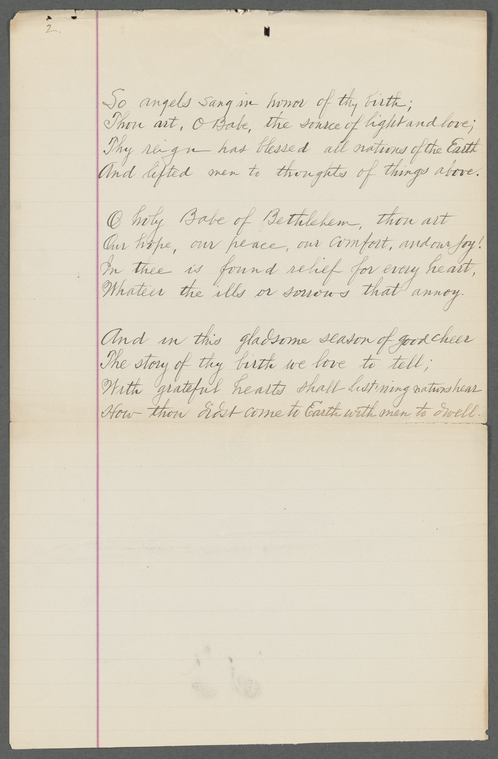 2.
So angels sang in honor of thy birth;
Thou art, O Babe, the source of light and love;
Thy reign has blessed all nations of the Earth
And lifted men to thoughts of things above.
O holy Babe of Bethlehem, thou art
Our hope, our peace, our comfort, and our joy!
In thee is found relief for every heart,
Whate'er the ills or sorrows that annoy.
And in this gladsome season of good cheer
The story of thy birth we love to tell;
With grateful hearts shall list'ning nations hear
How thou didst come to Earth with men to dwell.